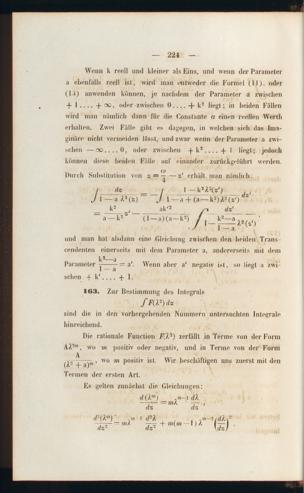 — 224 —
Wenn k reell und kleiner als Eins, und wenn der Parameter
a ebenfalls reell ist, wird man entweder die Formel (11). oder
(14) anwenden können, je nachdem der Parameter a zwischen
+ 1 .... + ∞, oder zwischen 0 .... + k² liegt; in beiden Fällen
wird man nämlich dann für die Constante α einen reellen Werth
erhalten. Zwei Fälle gibt es dagegen, in welchen sich das Ima-
ginäre nicht vermeiden lässt, und zwar wenn der Parameter a zwi-
schen — ∞ .... 0, oder zwischen + k² .... + 1 liegt; jedoch
können diese beiden Fälle auf einander zurückgeführt werden.
Durch Substitution von z = ω/4 — z' erhält man nämlich
∫ dz / (1 — a λ²(z)) = — ∫ (1 — k²λ²(z')) / (1 — a + (a — k²) λ²(z')) dz'
= k²/(a — k²) z' — ak'²/((1 — a)(a — k²)) ∫ dz' / (1 — (k² — a)/(1 — a) λ²(z'))
und man hat alsdann eine Gleichung zwischen den beiden Trans-
cendenten einerseits mit dem Parameter a, andererseits mit dem
Parameter (k² — a)/(1 — a) = a'. Wenn aber a' negativ ist, so liegt a zwi-
schen + k² .... + 1.
163. Zur Bestimmung des Integrals
∫ F(λ²) dz
sind die in den vorhergehenden Nummern untersuchten Integrale
hinreichend.
Die rationale Function F(λ²) zerfällt in Terme von der Form
Aλ²ᵐ, wo m positiv oder negativ, und in Terme von der Form
A/(λ² + a)ᵐ, wo m positiv ist. Wir beschäftigen uns zuerst mit den
Termen der ersten Art.
Es gelten zunächst die Gleichungen:
d(λᵐ)/dz = mλᵐ⁻¹ dλ/dz,
d²(λᵐ)/dz² = mλᵐ⁻¹ d²λ/dz² + m(m — 1) λᵐ⁻² (dλ/dz)²